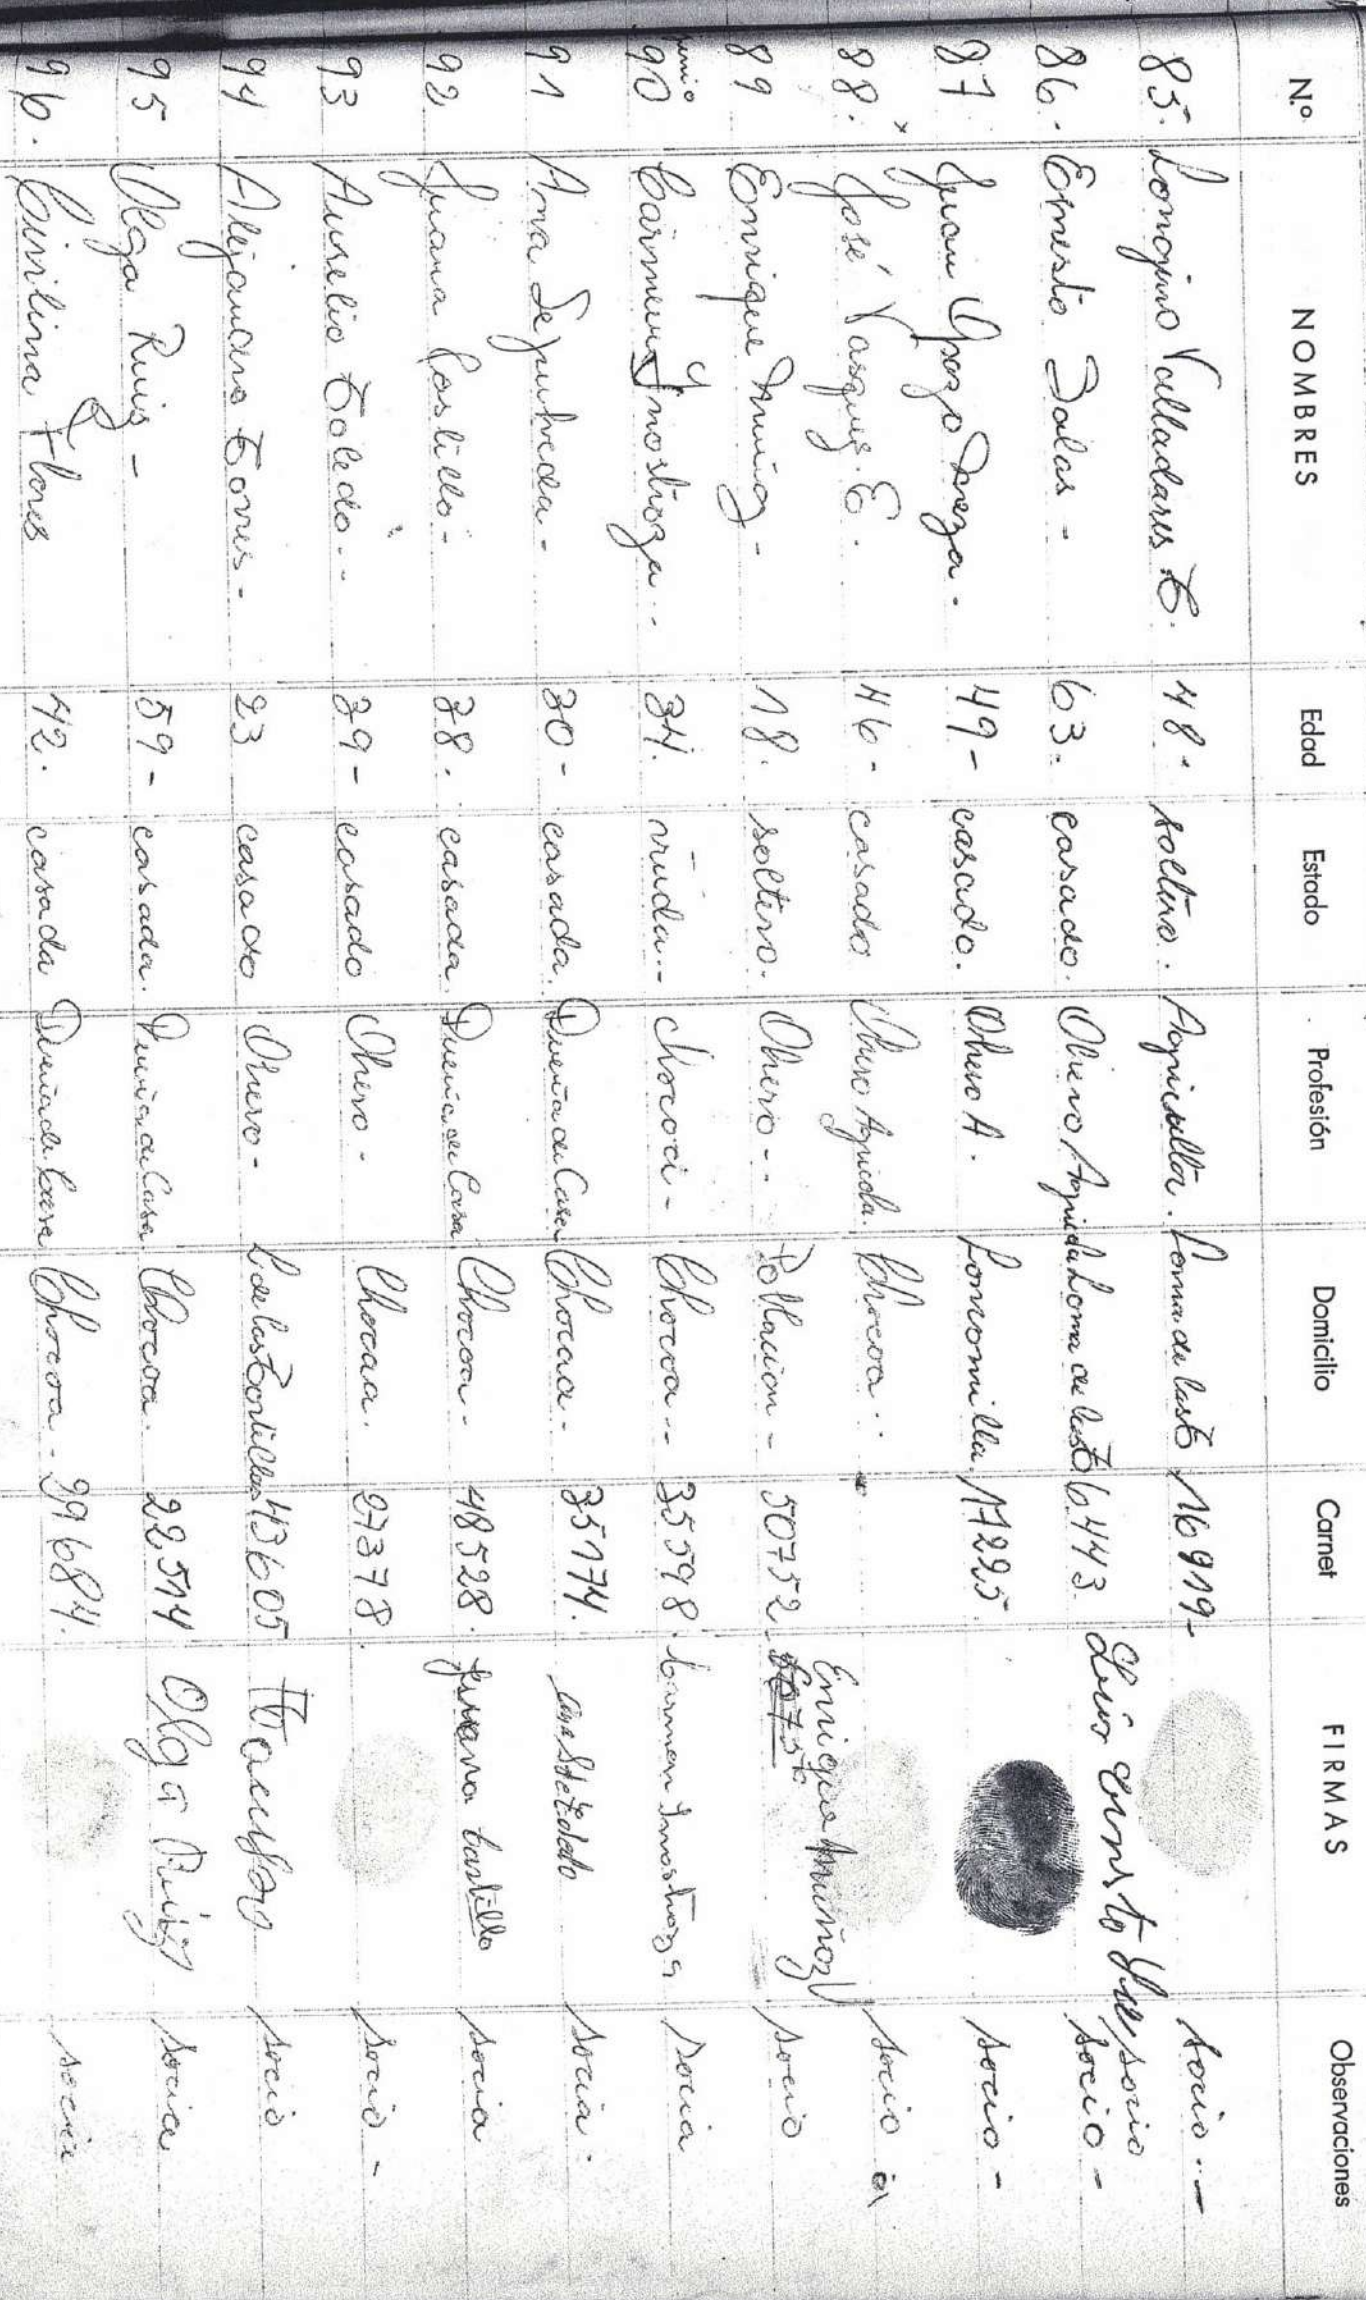 N.º NOMBRES Edad Estado Profesión Domicilio Carnet FIRMAS Observaciones
85. Longino Valladares T. 48. soltero. Agricultor. Loma de las T 16919- socio.-
86. Ernesto Salas - 63. casado. Obrero Agricola Loma de las T 6443. Luis Ernesto socio socio -
87 Juan Opazo Meza. 49- casado. Obrero A. Loncomilla, 17225 socio -
88. x José Vasquez. E. 46- casado Obrero Agricola. Chocoa.. socio
89 Enrique Muñoz - 18. soltero. Obrero -- Poblacion - 50752. Enrique Muñoz V socio
90 Carmen Ynostroza.. 34. viuda.- Chocoa.- 35598. Carmen Inostroza socia
91 Ana Sepulveda - 30- casada. Dueña de Casa Chocoa - 35174. socia.
92 Juana Castillo - 38. casada. Dueña de Casa Chocoa - 48528. Juana Castillo socia
93 Aurelio Toledo.- 39- casado Obrero - Chocoa. 27378. socio -
94 Alejandro Torres - 23 casado Obrero - L de las Tortillas 43605 socio
95 Olga Ruiz - 59- casada. Dueña de Casa Chocoa. 22514 Olga Ruiz socia
96. Flores 42. casada Dueña de Casa Chocoa.- 99684. socia